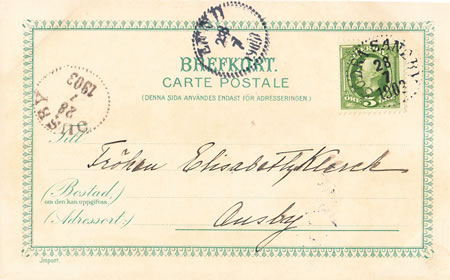 BREFKORT.
CARTE POSTALE
(DENNA SIDA ANVÄNDES ENDAST FÖR ADRESSERINGEN.)
28
7
1903
28
7
ÖRE 5
1903
28
Till
Fröken Elisabeth
(Bostad)
om den kan uppgifvas
(Adressort:)
Onsby
Import.